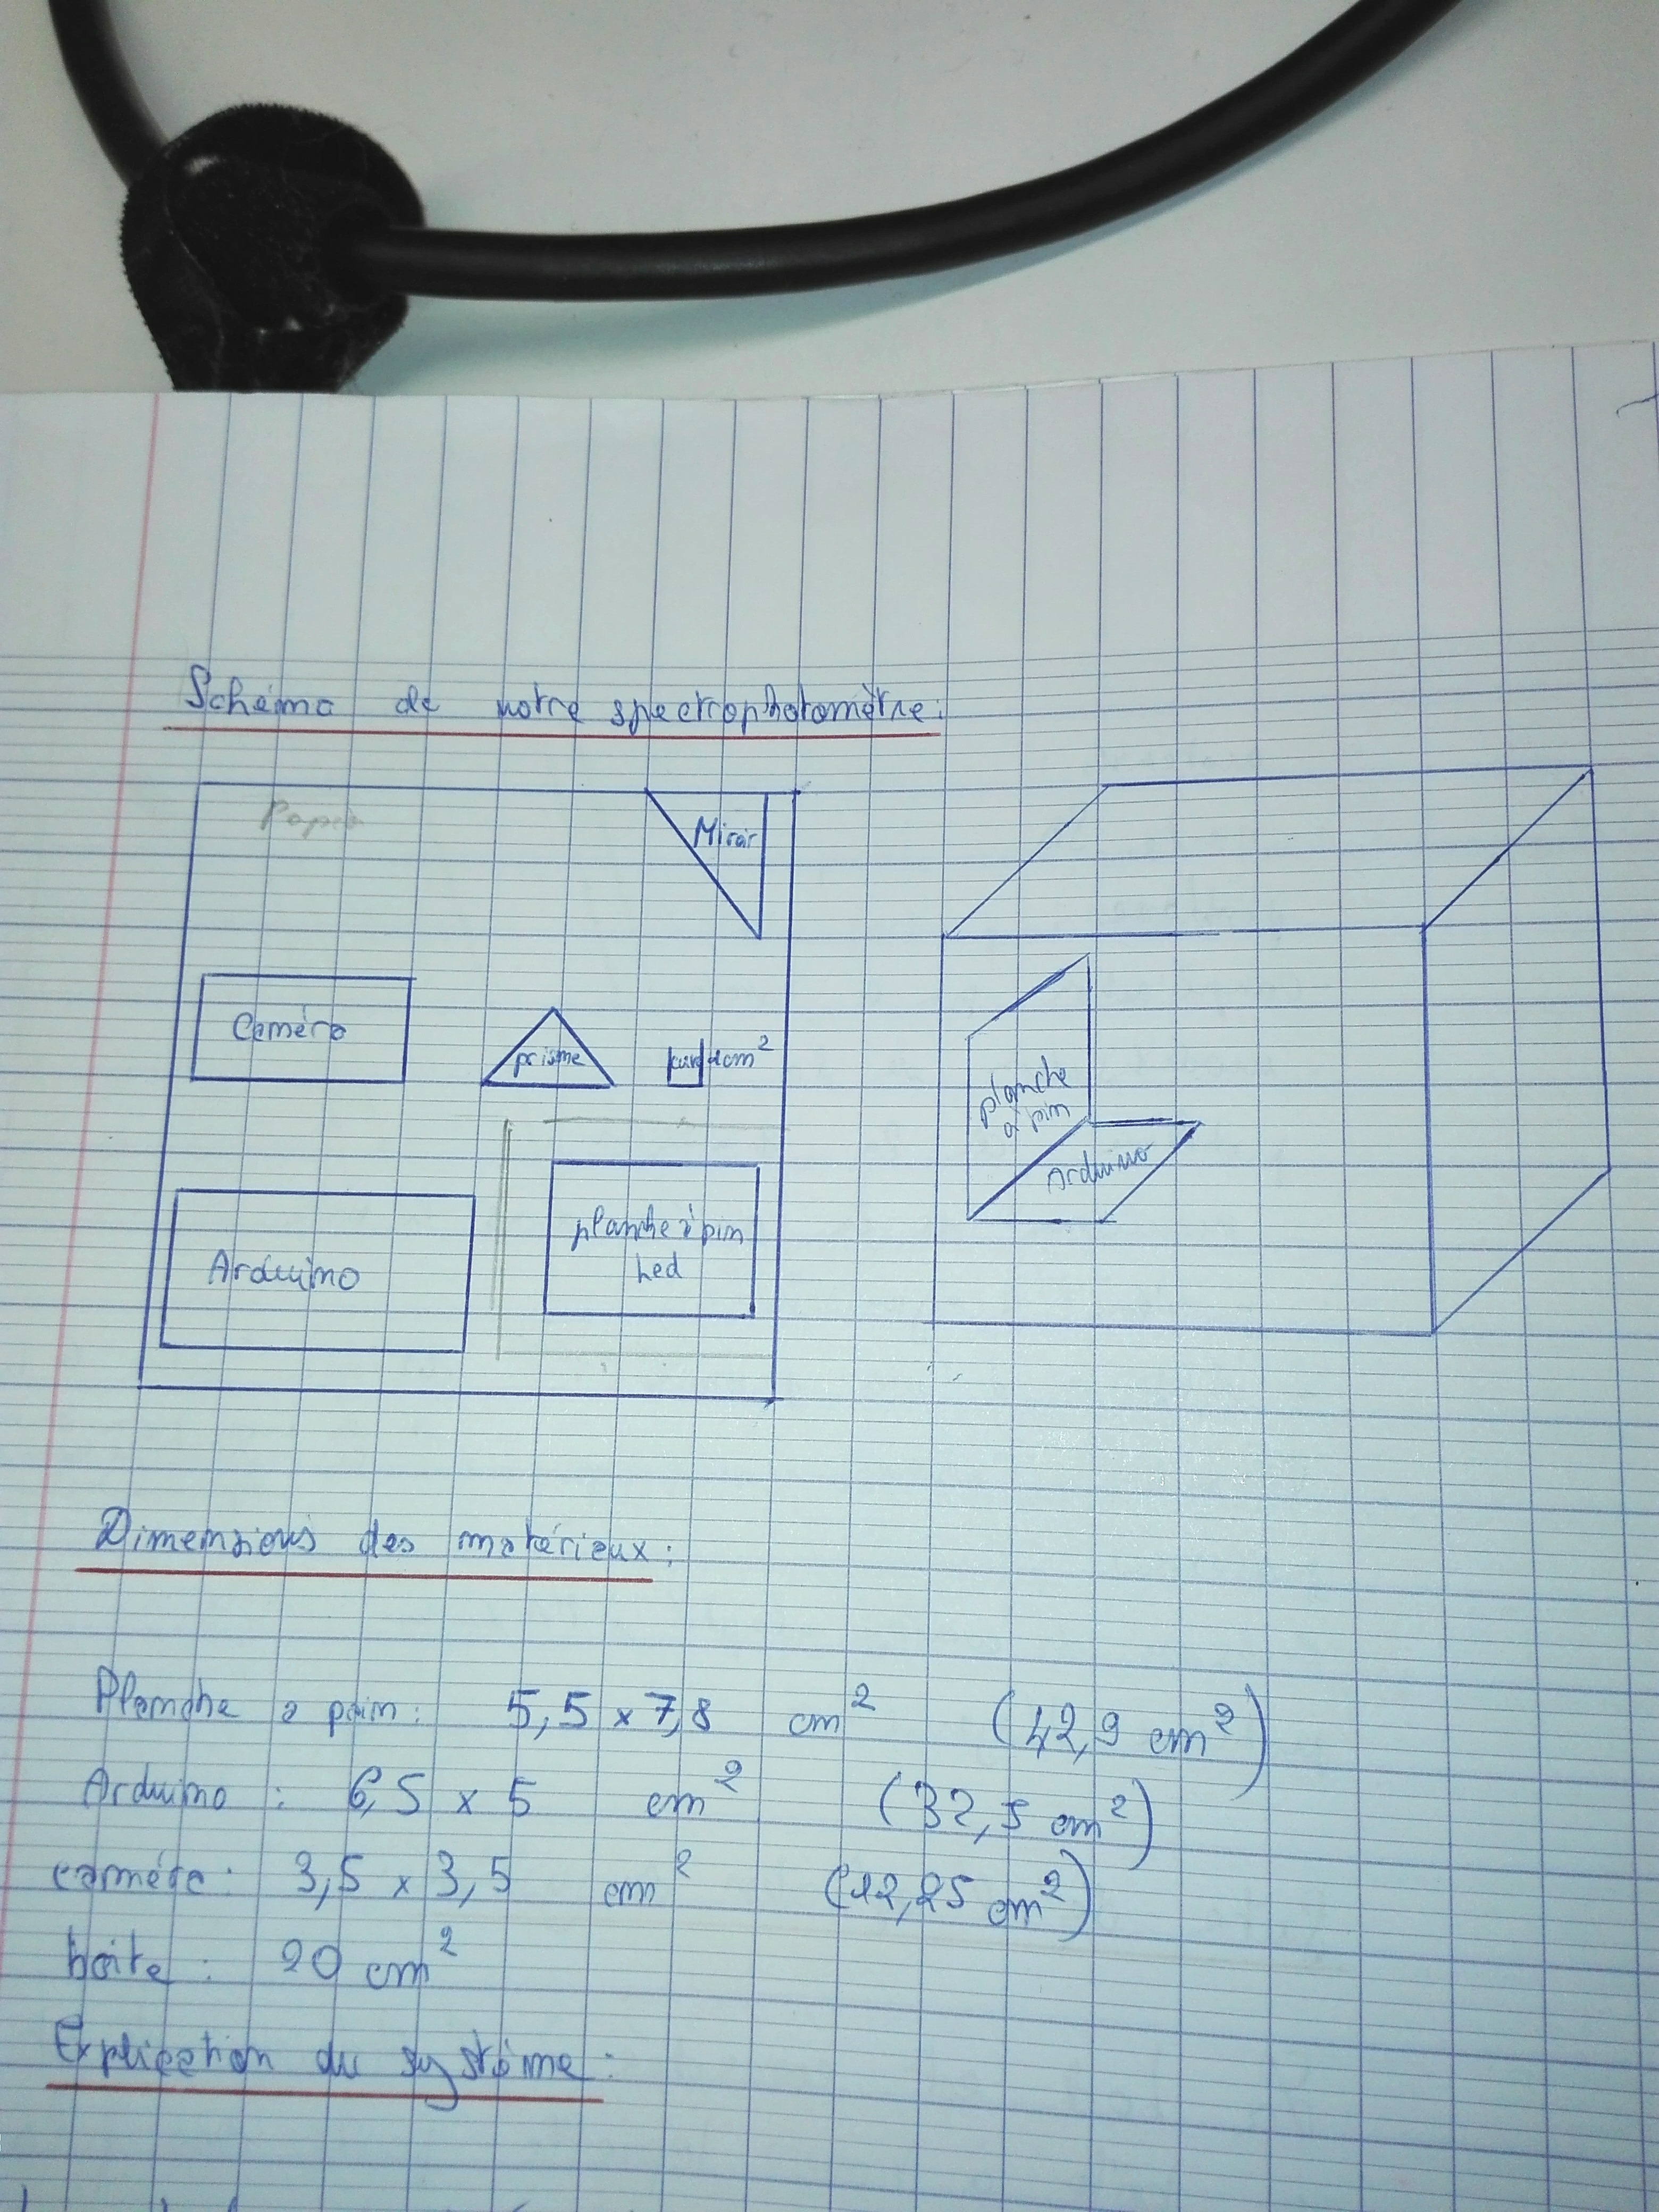 Schéma de notre spectrophotomètre:
Miroir
Caméra
prisme
1cm²
planche à pin
Led
Arduino
planche
à pin
Arduino
Dimensions des matérieux:
Planche a pain: 5,5 x 7,8 cm² (42,9 cm²)
Arduino: 6,5 x 5 cm² (32,5 cm²)
caméra: 3,5 x 3,5 cm² (12,25 cm²)
boite: 20 cm²
Explication du système: